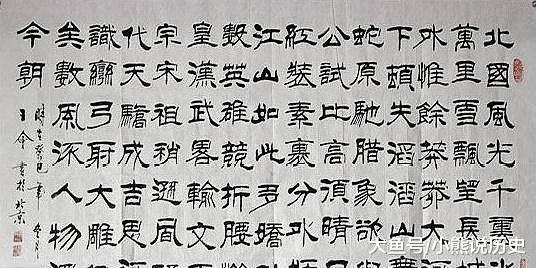 北國風光千
萬里雪飄望長
外惟餘莽莽大河
下頓失滔滔山
蛇原馳臘象欲
公試比高須晴日
紅裝素裹分外
江山如此多嬌
數英雄競折腰
皇漢武畧輸文
宗宋祖稍遜風
代天驕成吉思
識彎弓射大雕
矣數風流人物
今朝
時在癸巳年
書於北京
大魚号/小熊说历史